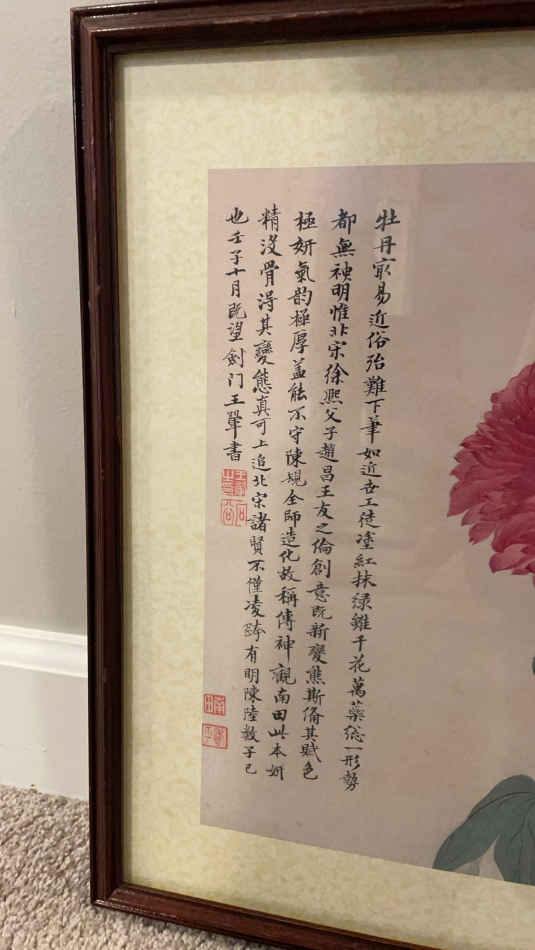 牡丹㝡易近俗殆難下筆如近世工徒塗紅抹緑雖千花萬蘂総一形勢
都無神明惟北宋徐熙父子趙昌王友之倫創意既新變態斯備其賦色
極妍氣韵極厚蓋能不守陳規全師造化故稱傳神觀南田此本妍
精没骨得其變態真可上追北宋諸賢不僅凌跨有明陳陸數子已
也壬子十月既望劍门王翬書